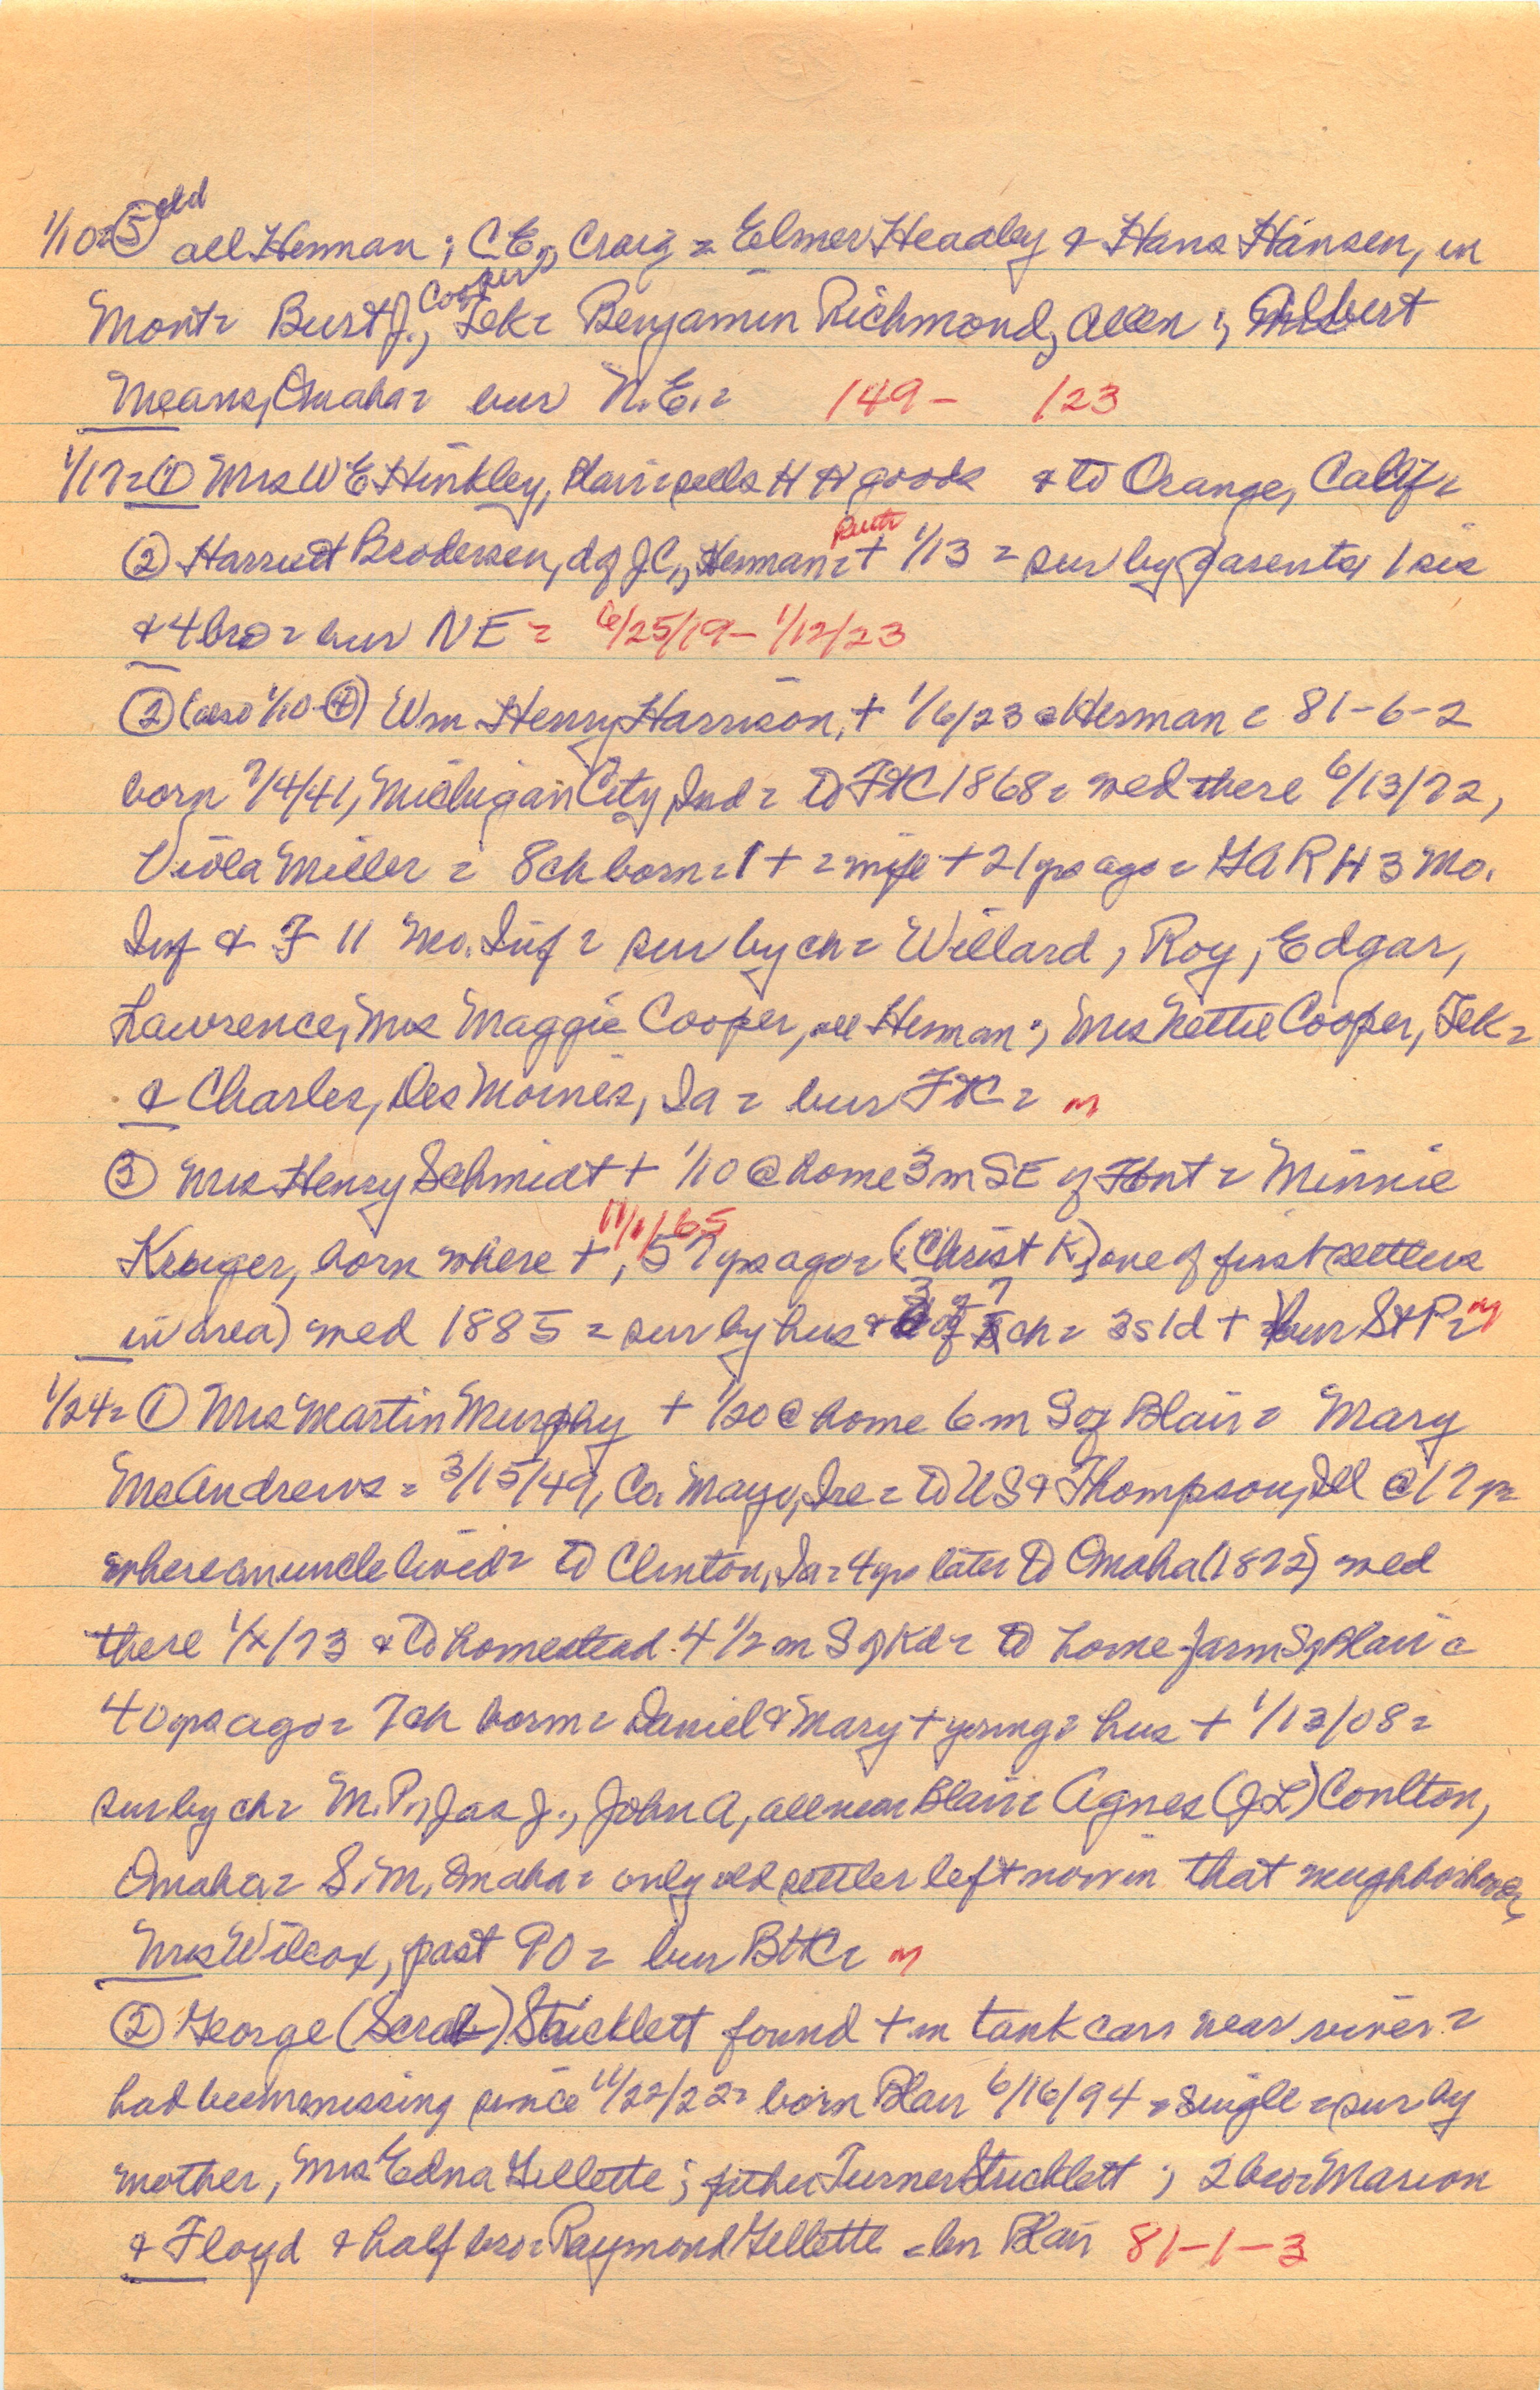 1/10= ⑤ cld all Herman; C.E., Craig = Elmer Headley & Hans Hansen, in
Mont= Burt J. Cooper, Tek= Benjamin Richmond, Allen; Albert
Means, Omaha= bur N.E.= 149- 123
1/17= ① Mrs W E Hinkley, Blair= sells H H goods & to Orange, Calif=
② Harriett Brodersen, d of J C, Herman= Ruth + 1/13 = sur by parents, 1 sis
& 4 bro= bur NE = 6/25/19- 1/12/23
② (also 1/10-④) Wm Henry Harrison, + 1/6/23 @ Herman = 81-6-2
born 7/4/41, Michigan City, Ind= to FtC 1868= wed there 6/13/72,
Viola Miller = 8 ch born= 1 + = wife + 21 ys ago= GAR H 3 Mo.
Inf & F 11 Mo. Inf= sur by ch= Willard, Roy, Edgar,
Lawrence, Mrs Maggie Cooper, all Herman; Mrs Nettie Cooper, Tek=
& Charles, Des Moines, Ia= bur FtC= m
③ Mrs Henry Schmidt + 1/10 @ home 3 m SE of Font= Minnie
Kruger, born where +, 11/1/65 57 ys ago= (Christ K, one of first settlers
in area) wed 1885 = sur by hus & 3 of 7 ch= 3s 1d + bur St P= m
1/24= ① Mrs Martin Murphy + 1/20 @ home 6 m S of Blair= Mary
McAndrews = 3/15/49, Co. Mayo, Ire= to US & Thompson, Ill @ 17 ys
where an uncle lived= to Clinton, Ia= 4 ys later to Omaha (1872) wed
there 1/x/73 & to homestead 4 1/2 m S of Kd= to home farm S of Blair =
40 ys ago= 7 ch born= Daniel & Mary + young= hus + 1/13/08=
sur by ch= M.P., Jas J., John A, all near Blair= Agnes (J L) Conlton,
Omaha= S.M., Omaha= only old settler left now in that neighborhood,
Mrs Wilcox, past 90= bur BtC= m
② George (Scrab) Stricklett found + in tank cars near river=
had been missing since 11/22/22= born Blair 6/16/94 = single = sur by
mother, Mrs Edna Gellette; father Turner Stricklett; 2 bro= Marion
& Floyd & half bro= Raymond Gellette = bu Blair 81-1-3